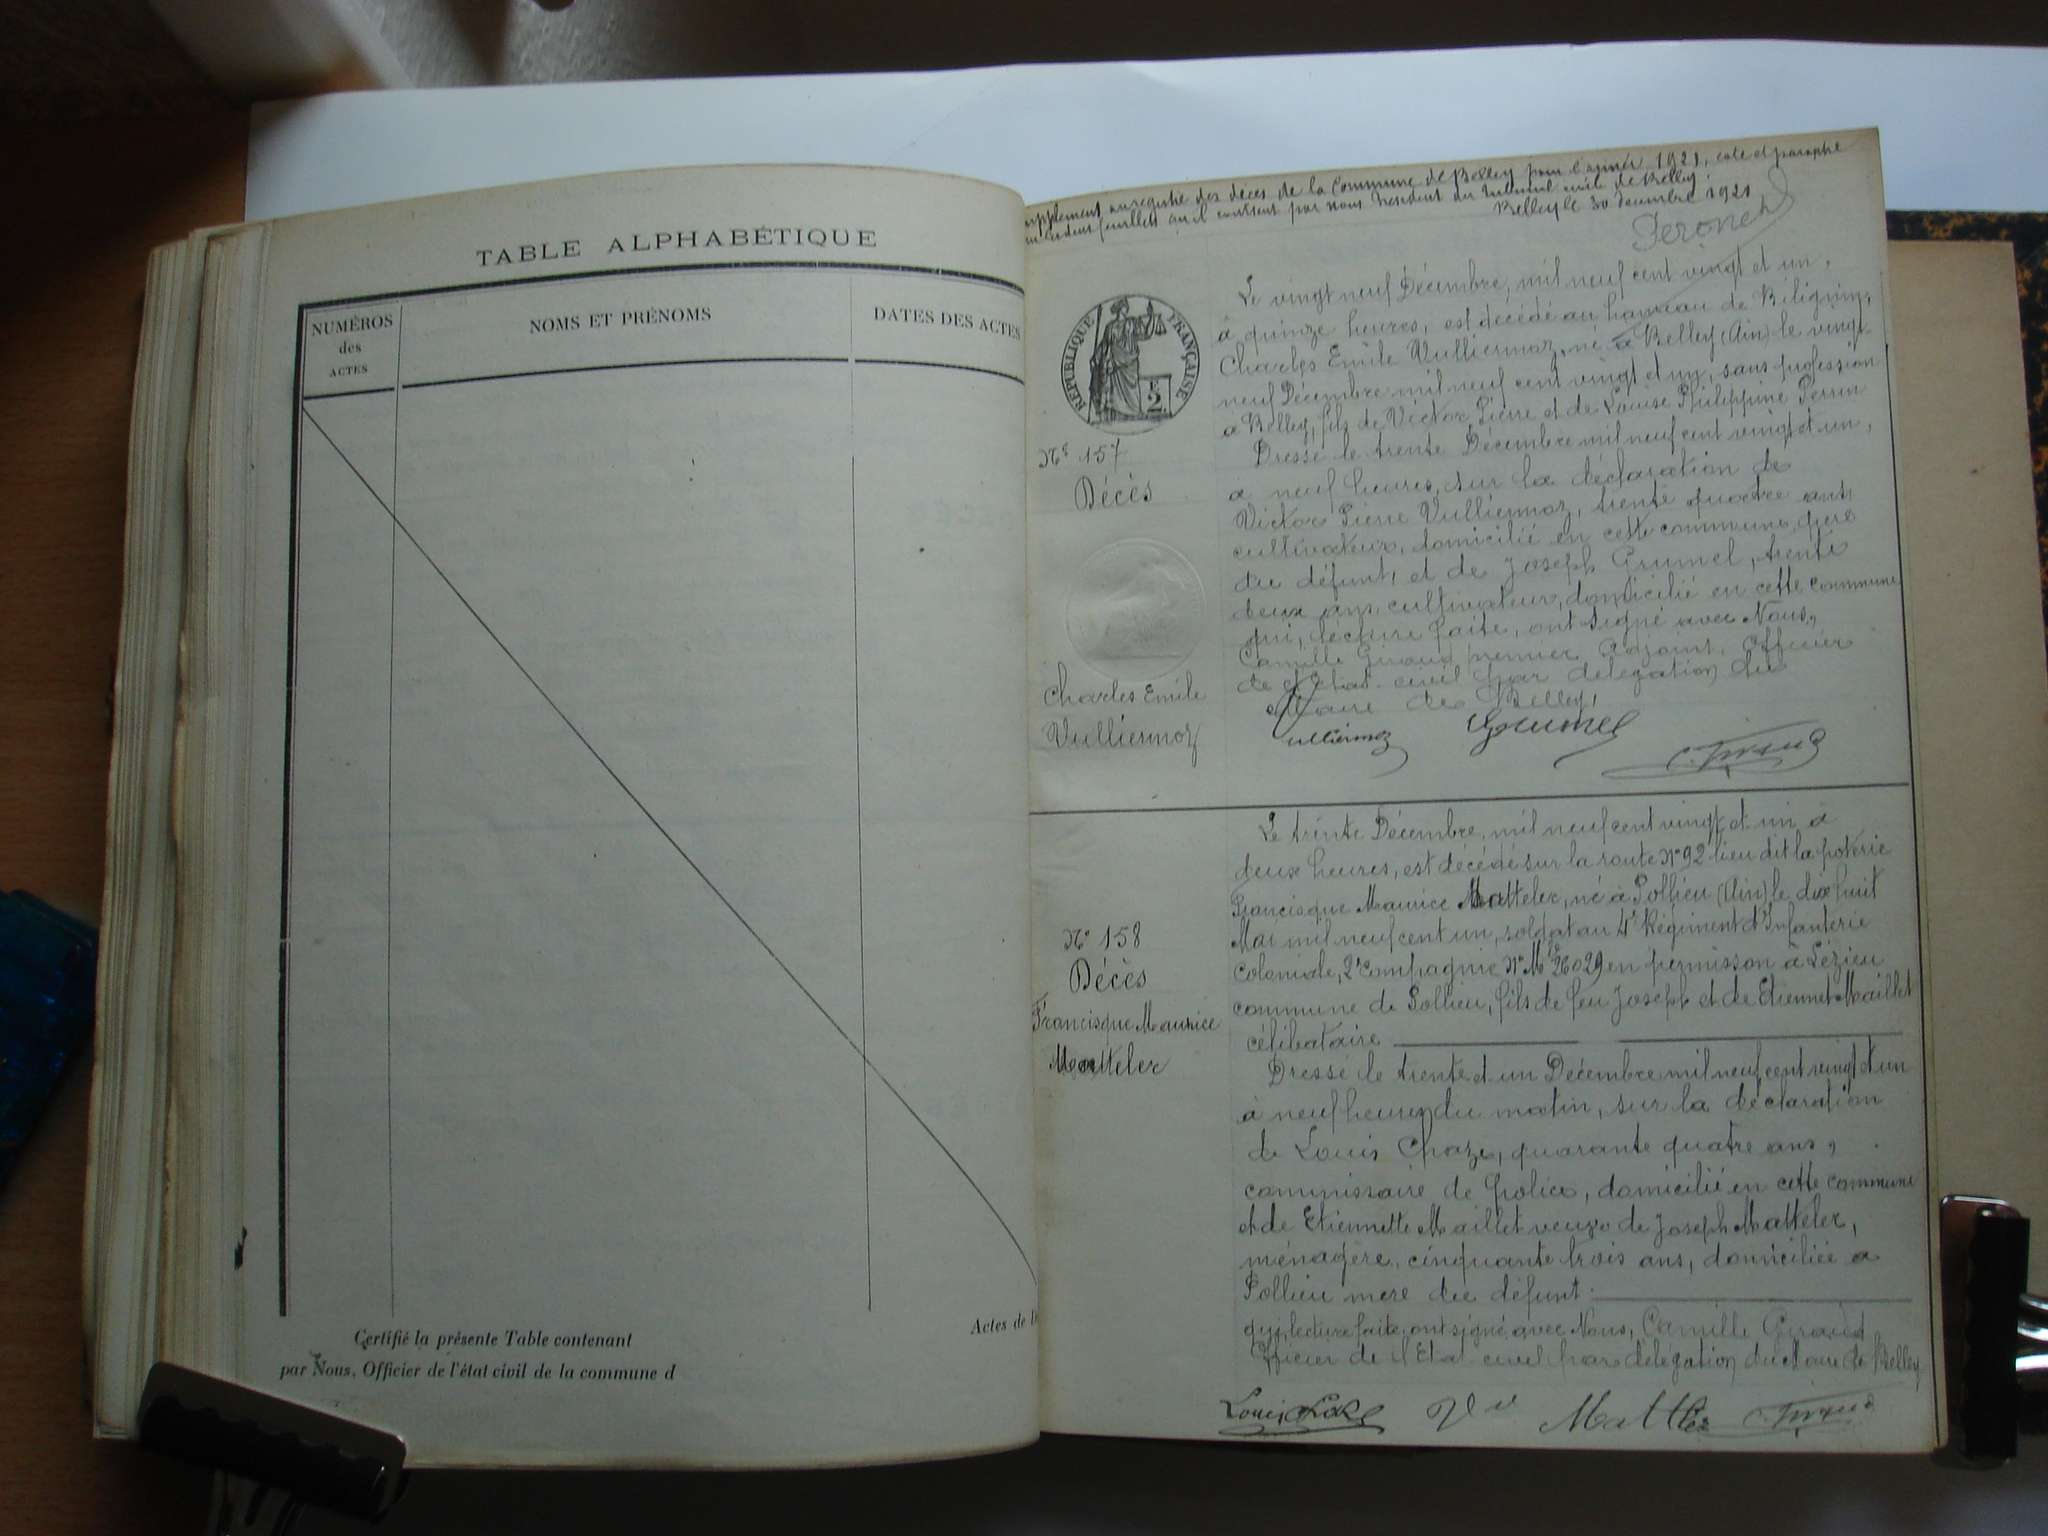 TABLE ALPHABÉTIQUE
NUMÉROS
des
ACTES
NOMS ET PRÉNOMS
DATES DES ACTES
Certifié la présente Table contenant
par Nous, Officier de l'état civil de la commune d
Actes de
supplément au registre des décès de la Commune de Belley pour l'année 1921, coté et paraphé
feuillets qu'il contient par nous Président du tribunal civil de Belley.
Belley le 30 décembre 1921
RÉPUBLIQUE FRANÇAISE
2
Nº 157
Décès
Charles Emile
Vulliermoz
Le vingt neuf Décembre, mil neuf cent vingt et un,
à quinze heures, est décédé au hameau de Bilignin,
Charles Emile Vulliermoz, né à Belley (Ain) le vingt
neuf Décembre mil neuf cent vingt et un, sans profession
à Belley, fils de Victor Pierre et de Louise Philippine Perrin
Dressé le trente Décembre mil neuf cent vingt et un,
à neuf heures, sur la déclaration de
Victor Pierre Vulliermoz, trente quatre ans,
cultivateur, domicilié en cette commune, père
du défunt, et de Joseph Grumel, trente
deux ans, cultivateur, domicilié en cette commune
qui, lecture faite, ont signé avec Nous,
Camille Giraud premier Adjoint, Officier
de l'Etat-civil par délégation du
Maire de Belley,
Vulliermoz Grumel C. Giraud
Nº 158
Décès
Francisque Maurice
Matteler
Le trente Décembre, mil neuf cent vingt et un à
deux heures, est décédé sur la route Nº 92 lieu dit la poterie
Francisque Maurice Matteler, né à Pollieu (Ain) le dix huit
Mai mil neuf cent un, soldat au 4e Régiment d'Infanterie
Coloniale, 2e Compagnie Nº Mle 26029 en permission à Lézieu
commune de Pollieu, fils de feu Joseph et de Etiennet Maillet
célibataire
Dressé le trente et un Décembre mil neuf cent vingt et un
à neuf heures du matin, sur la déclaration
de Louis Chaze, quarante quatre ans,
commissaire de police, domicilié en cette commune
et de Etiennette Maillet veuve de Joseph Matteler,
ménagère, cinquante trois ans, domiciliée à
Pollieu mère du défunt.
qui, lecture faite, ont signé avec Nous, Camille Giraud
Officier de l'Etat-civil par délégation du Maire de Belley
Louis Chaze Vve Mattler C. Giraud